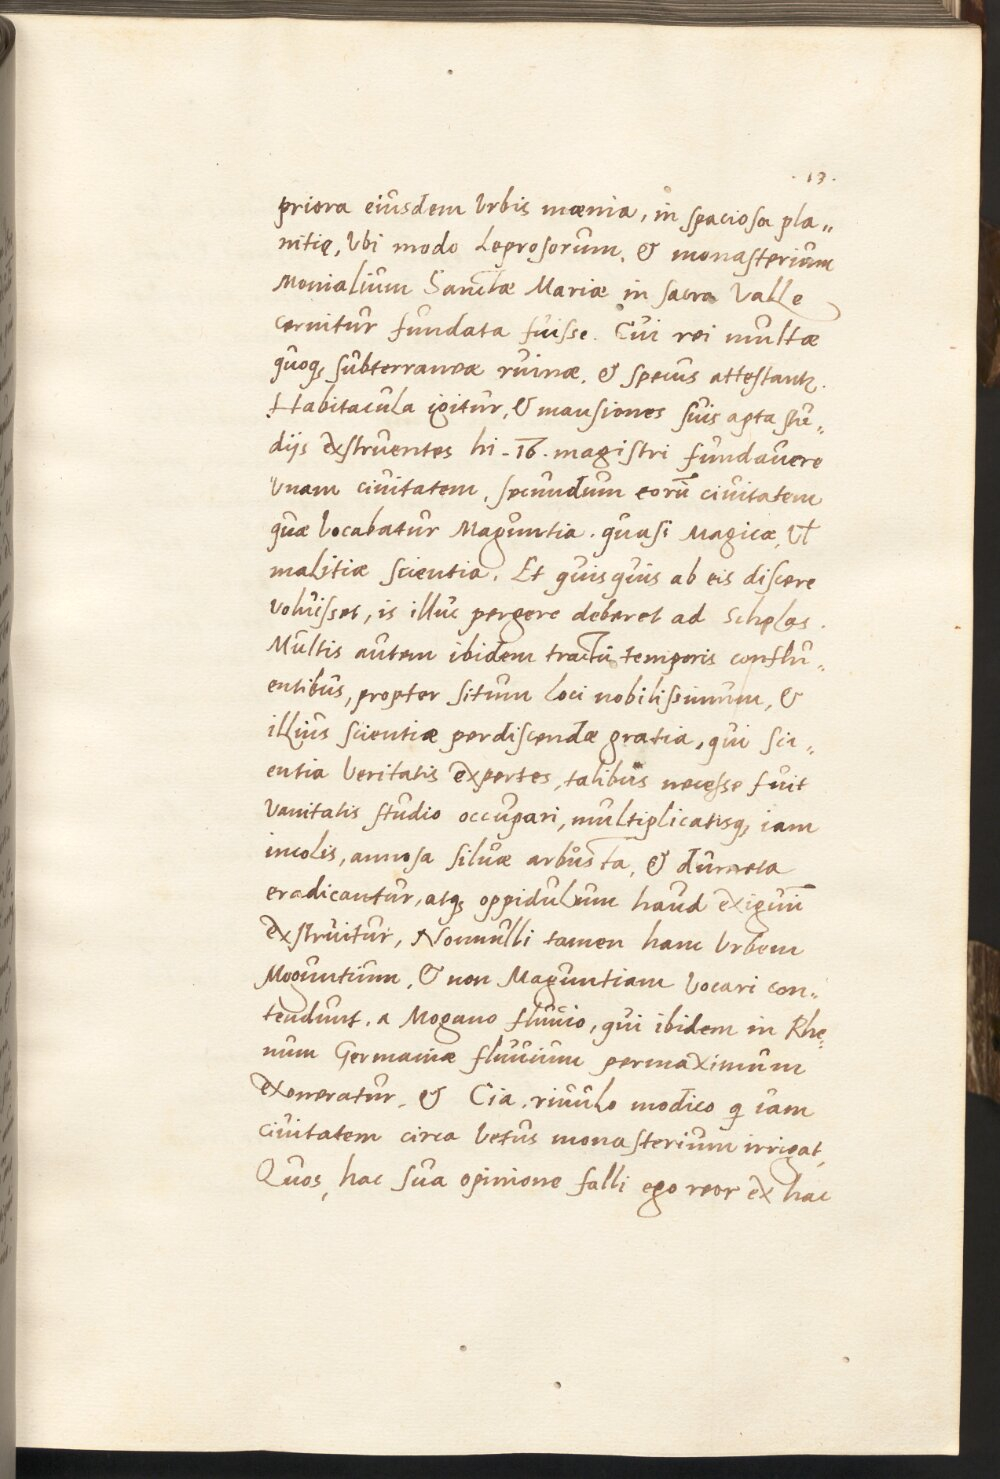 13.
priora eiusdem Urbis mœnia, in spaciosa pla„
nitię, Ubi modo Leprosorum, & monasterium
Monialium Sanctæ Mariæ in sacra Valle
cernitur fundata fuisse. Cui rei multæ
quoq, subterraneæ ruinæ, & specus attestantr.
Habitacula igitur, & mansiones suis apta stu„
dijs exstruentes hi .16. magistri fundavere
Unam civitatem, secundum eorū civitatem
quæ Vocabatur Maguntia. quasi Magicæ, Vl
malitiæ scientia. Et quisquis ab eis discere
Voluisset, is illuc pergere deberet ad Scholas.
Multis autem ibidem tractu temporis conflu„
entibus, propter situm loci nobilissimum, &
illius scientiæ perdiscendæ gratia, qui sci„
entia Veritatis expertes, talibus necesse fuit
Vanitatis studio occupari, multiplicatisq, iam
incolis, annosa siluæ arbusta, & dumeta
eradicantur, atq, oppidulum haud exiguū
exstruitur, Nonnulli tamen hanc Urbem
Moguntium, & non Maguntiam Vocari con„
tendunt, a Mogano fluuio, qui ibidem in Rhe„
num Germaniæ fluuium permaximum
exoneratur, & Cia, riuulo modico q iam
civitatem circa Vetus monasterium irrigat,
Quos, hac sua opinione falli ego reor ex hac